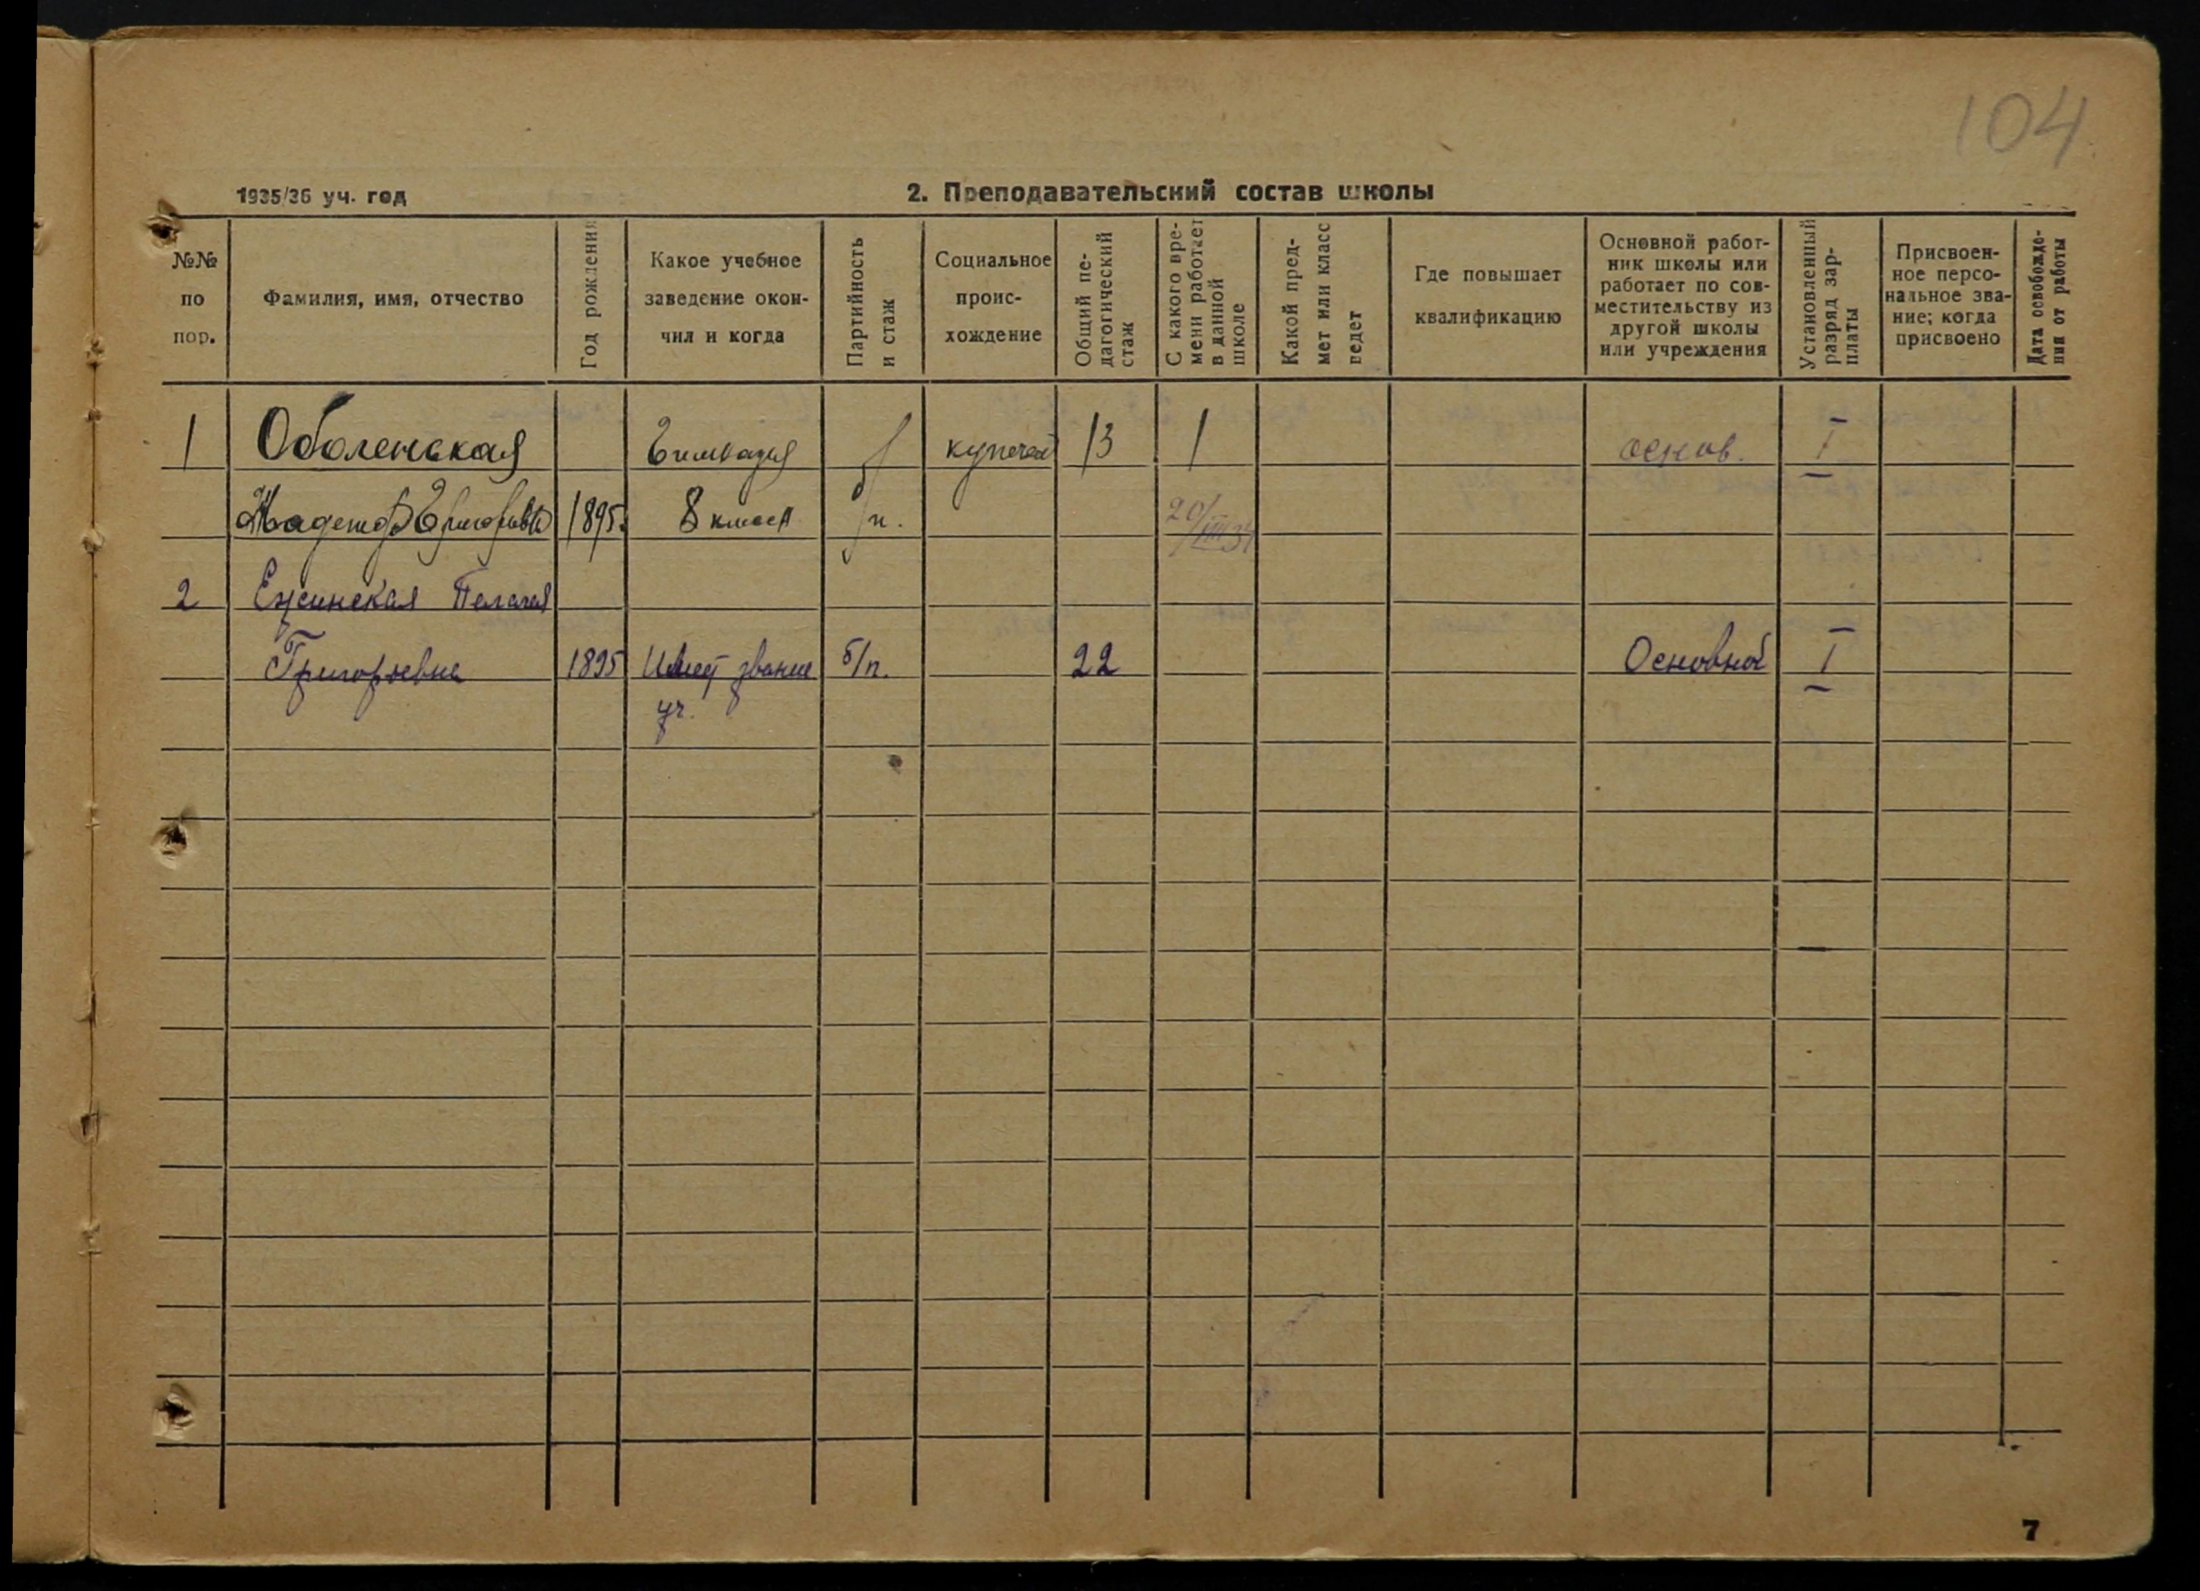 104
1935/36 уч. год
2. Преподавательский состав школы
№№ по пор.
Фамилия, имя, отчество
Год рождения
Какое учебное заведение окончил и когда
Партийность и стаж
Социальное происхождение
Общий педагогический стаж
С какого времени работает в данной школе
Какой предмет или класс ведет
Где повышает квалификацию
Основной работник школы или работает по совместительству из другой школы или учреждения
Установленный разряд зарплаты
Присвоенное персональное звание; когда присвоено
Дата освобождения от работы
1 Оболенская Гимназия б/ 13 1 основ. I
1895 8 класс п. 20/VIII 34
2 Ежинская Пелагея
Григорьевна 1895 Имеет звание б/п. 22 Основной I
уч.
7